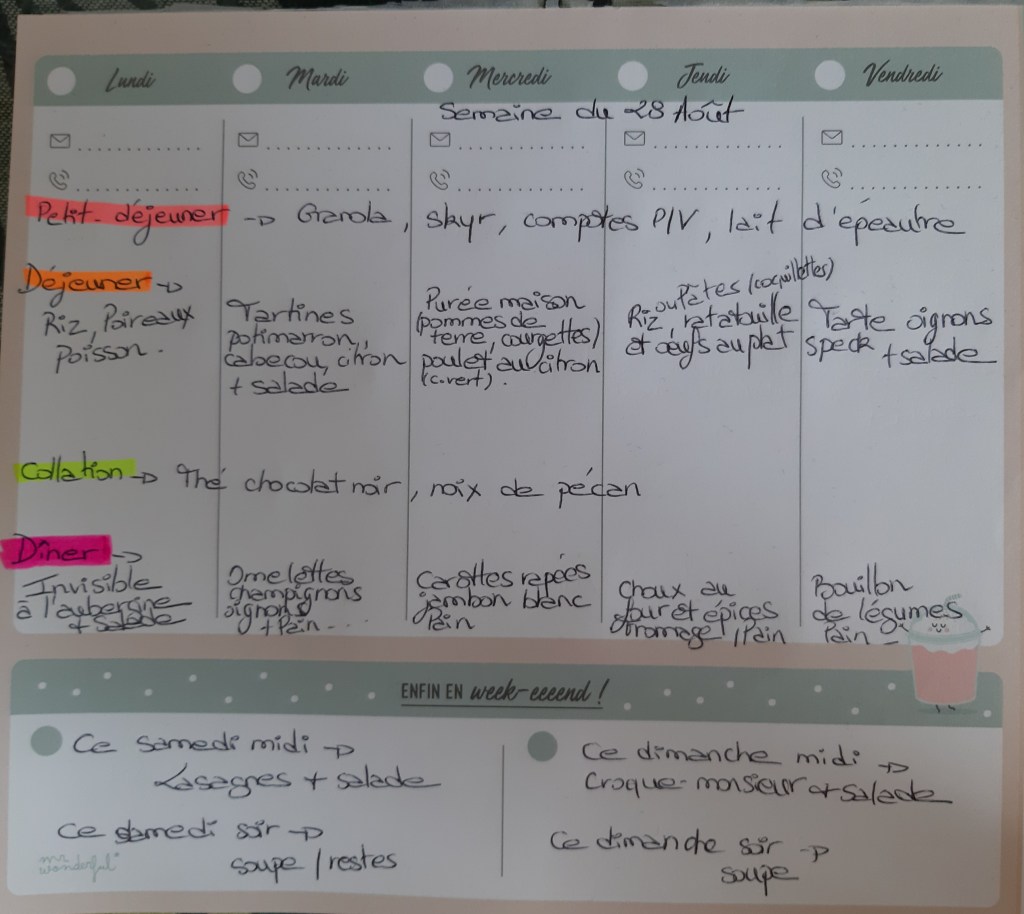 Lundi
Mardi
Mercredi
Jeudi
Vendredi
Semaine du 28 Août
Petit-déjeuner -> Granola, skyr, compotes P/V, lait d'épeautre
Déjeuner ->
Riz, Poireaux
poisson.
Tartines
potimarron,
cabecou, citron
+ salade
Purée maison
(pommes de
terre, courgettes)
poulet au citron
(c.vert).
ou Pâtes (coquillettes)
Riz, ratatouille
et oeufs au plat
Tarte oignons
speck + salade
Collation -> Thé chocolat noir, noix de pécan
Dîner ->
Invisible
à l'aubergine
+ salade
Omelettes
champignons
oignons
+ Pain...
Carottes rapées
jambon blanc
Pain
Choux au
four et épices
fromage / Pain
Bouillon
de légumes
Pain -
ENFIN EN week-eeeend !
Ce samedi midi ->
Lasagnes + salade
Ce samedi soir ->
soupe / restes
mr wonderful*
Ce dimanche midi ->
Croque-monsieur + salade
Ce dimanche soir ->
soupe